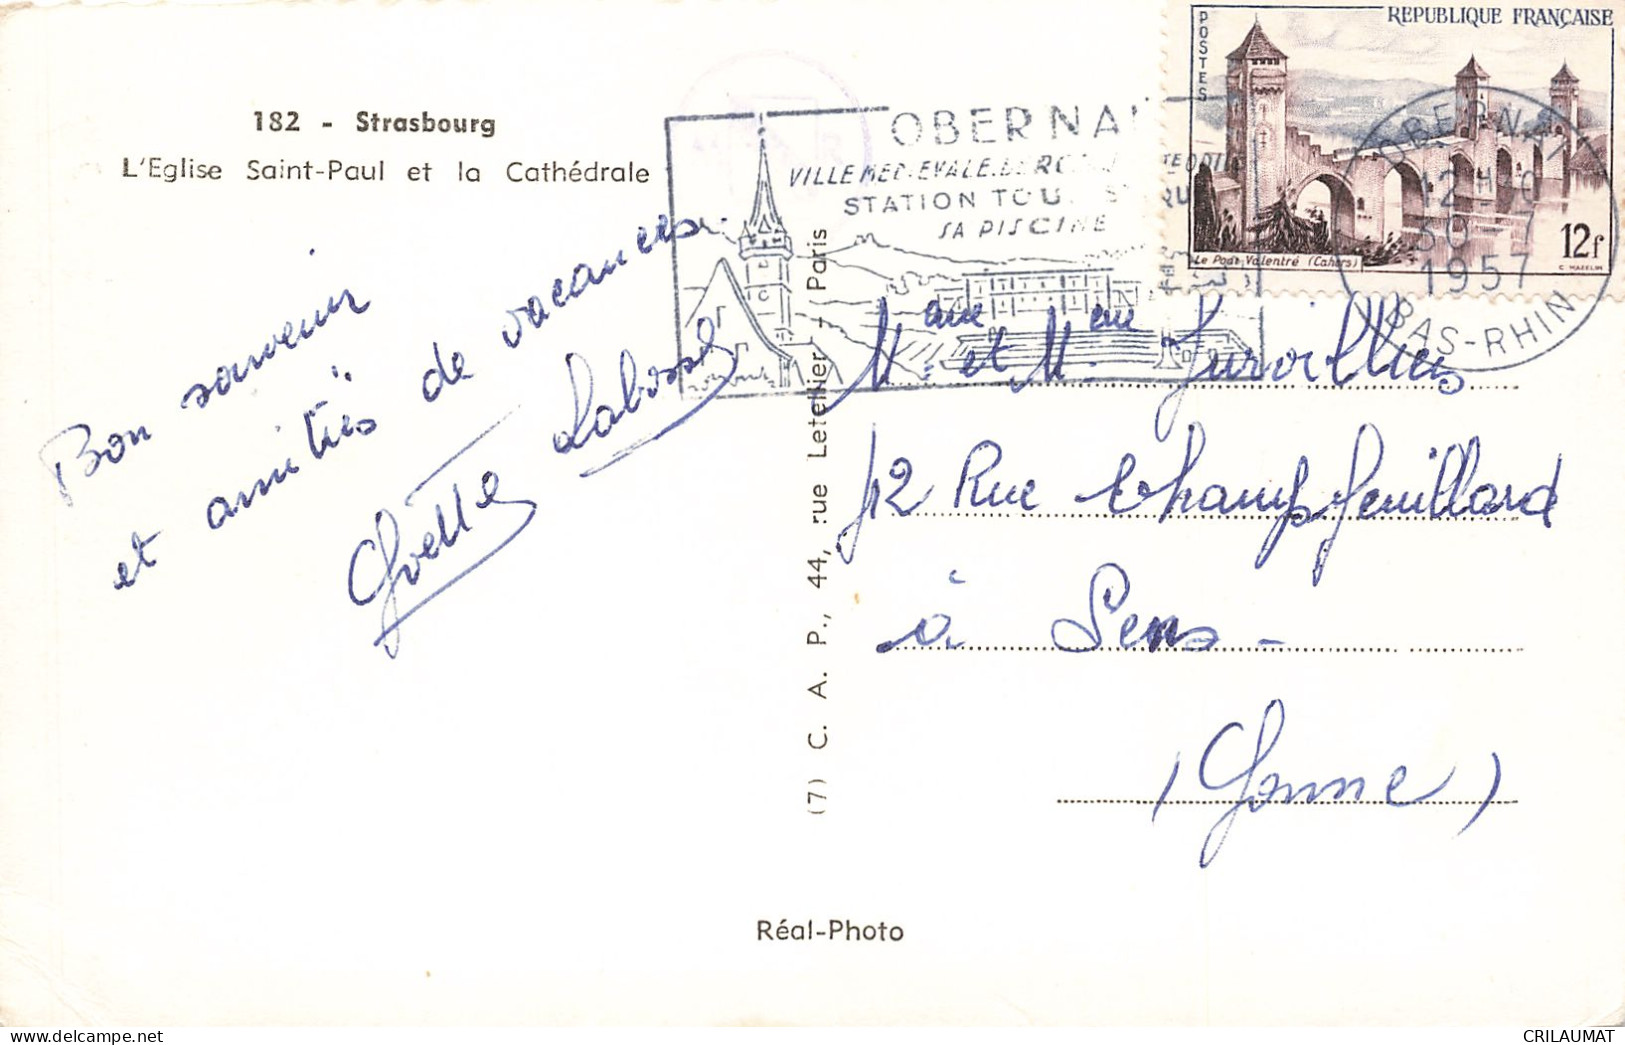 182 - Strasbourg
L'Eglise Saint-Paul et la Cathédrale
Bon souvenir
et amitiés de vacances.
Yvette
OBERNAI
VILLE MEDIEVALE
STATION TOU
SA PISCINE
POSTES
REPUBLIQUE FRANÇAISE
Le Pont Valentré (Cahors)
12f
C. MAZELIN
OBERNAI
12 H
30-7
1957
BAS-RHIN
(7) C. A. P., 44, rue Letellier - Paris
et
Rue Champfeuillard
à Sens -
(Yonne)
Réal-Photo
CRILAUMAT